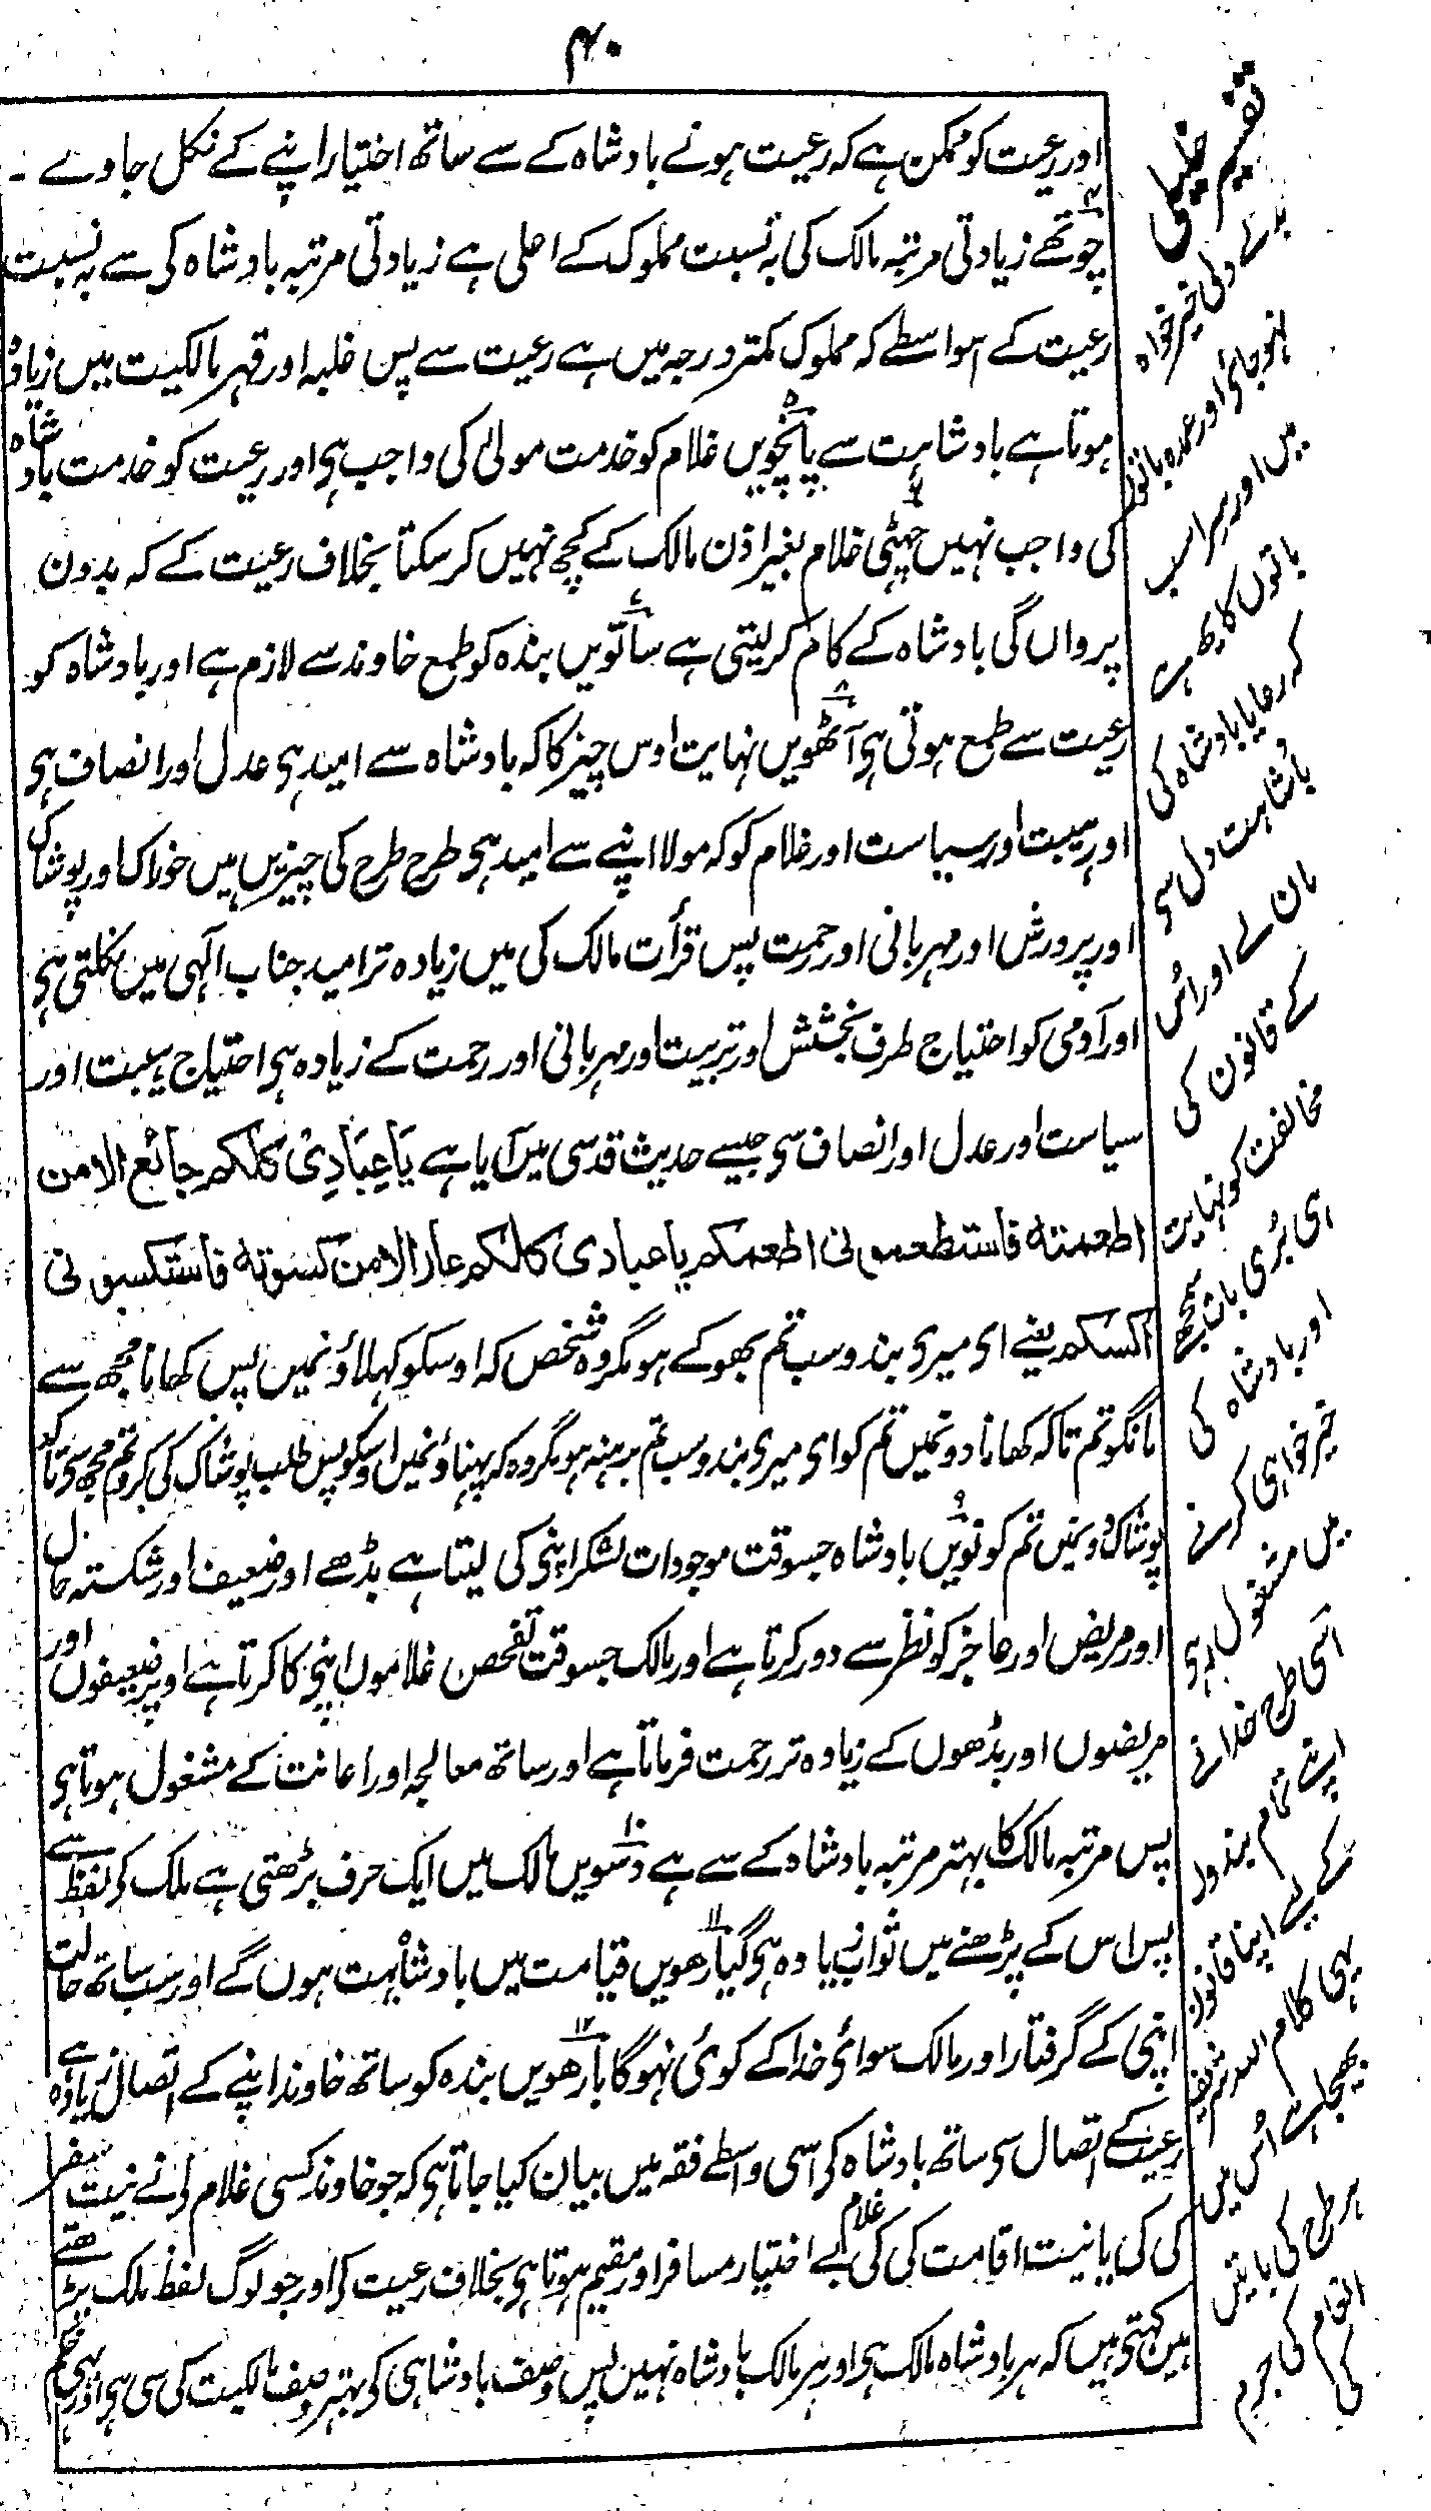 ۴۰
اور رعیت کو ممکن ہے کہ رعیت ہونے بادشاہ کے سے ساتھ اختیار اپنے کے نکل جاوے ۔
چوتھے زیادتی مرتبہ مالک کی بہ نسبت مملوک کے اصلی ہے زیادتی مرتبہ بادشاہ کی سے بہ نسبت
رعیت کے اسواسطے کہ مملوک کمتر درجہ میں ہے رعیت سے پس غلبہ اور قہر مالکیت میں زیادہ
ہوتا ہے بادشاہت سے پانچویں غلام کو خدمت مولیٰ کی واجب ہی اور رعیت کو خدمت بادشاہ
کی واجب نہیں چہٹی غلام بغیر اذن مالک کے کچھ نہیں کر سکتا بخلاف رعیت کے کہ بدون
پروانگی بادشاہ کے کام کر لیتی ہے ساتویں بندہ کو طمع خاوند سے لازم ہے اور بادشاہ کو
رعیت سے طمع ہوتی ہی آٹھویں نہایت اوس چیز کا کہ بادشاہ سے امید ہی عدل اور انصاف ہی
اور ہیبت اور سیاست اور غلام کو کہ مولا اپنے سے امید ہی طرح طرح کی چیزیں ہیں خوراک اور پوشاک
اور پرورش اور مہربانی اور رحمت پس قرأت مالک کی میں زیادہ تر امید جناب الٰہی مین نکلتی ہی
اور آدمی کو احتیاج طرف بخشش اور تربیت اور مہربانی اور رحمت کے زیادہ ہی احتیاج ہیبت اور
سیاست اور عدل اور انصاف سی جیسے حدیث قدسی میں آیا ہے یَا عِبَادِیْ کلکم جائع الا من
اطعمتہ فاستطعمونی اطعمکم یا عبادی کلکم عار الا من کسوتہ فاستکسونی
اکسکم یعنے ای میری بندو سب تم بھوکے ہو مگر وہ شخص کہ اوسکو کہلاؤنمیں پس کھانا مجھ سے
مانگو تم تاکہ کھانا دونمیں تم کو ای میری بندو سب تم برہنہ ہو مگر وہ کہ پہناؤنمیں اوسکو پس طلب پوشاک کی کرو تم مجھ سی تاکہ
پوشاک دونمیں تم کو نویں بادشاہ جسوقت موجودات لشکر اپنی کی لیتا ہے بڈھے اور ضعیف اور شکستہ حال
اور مریض اور عاجز کو نظر سے دور کرتا ہے اور مالک جسوقت تفحص غلاموں اپنی کا کرتا ہے اوپر ضعیفوں اور
مریضوں اور بڈھوں کے زیادہ تر رحمت فرماتا ہے اور ساتھ معالجہ اور اعانت کے مشغول ہوتا ہی
پس مرتبہ مالک کا بہتر مرتبہ بادشاہ کے سے ہے دسویں مالک میں ایک حرف بڑھتی ہے ملک کے لفظ سے
پس اس کے پڑھنے میں ثواب زیادہ ہی گیارھویں قیامت میں بادشاہ بہت ہوں گے اور سب ساتھ حالت
اپنی کے گرفتار اور مالک سوائی خدا کے کوئی نہوگا بارھویں بندہ کو ساتھ خاوند اپنے کے اتصال زیادہ ہے
رعیت کے اتصال سی ساتھ بادشاہ کی اسی واسطے فقہ میں بیان کیا جاتا ہی کہ جو خاوند کسی غلام کی نے نیت سفر
کی کی یا نیت اقامت کی کی غلام بے اختیار مسافر اور مقیم ہوتا ہی بخلاف رعیت کی اور جو لوگ لفظ ملک پڑھتے
ہین کہتی ہیں کہ ہر بادشاہ مالک ہی اور ہر مالک بادشاہ نہین پس وصف بادشاہی کی بہتر وصف مالکیت کی سی ہی اور یہی حکم
دلی خیر خواہ
ہو جائے اور عمدہ باتوں
میں اور
باتوں کا
کہ رعایا بادشاہ کی
بادشاہت دل سی
مان لے اور اُس
کے قانون کی
مخالفت کو نہایت
ہی بُری بات سمجھے
اور بادشاہ کی
خیر خواہی کرنے
میں مشغول رہی
اسی طرح خدا نے
اپنے تمام بندوں
کے لیے اپنا قانون
یہی کلام اللہ شریف
بھیجا ہے اُس میں
ہر طرح کی باتیں